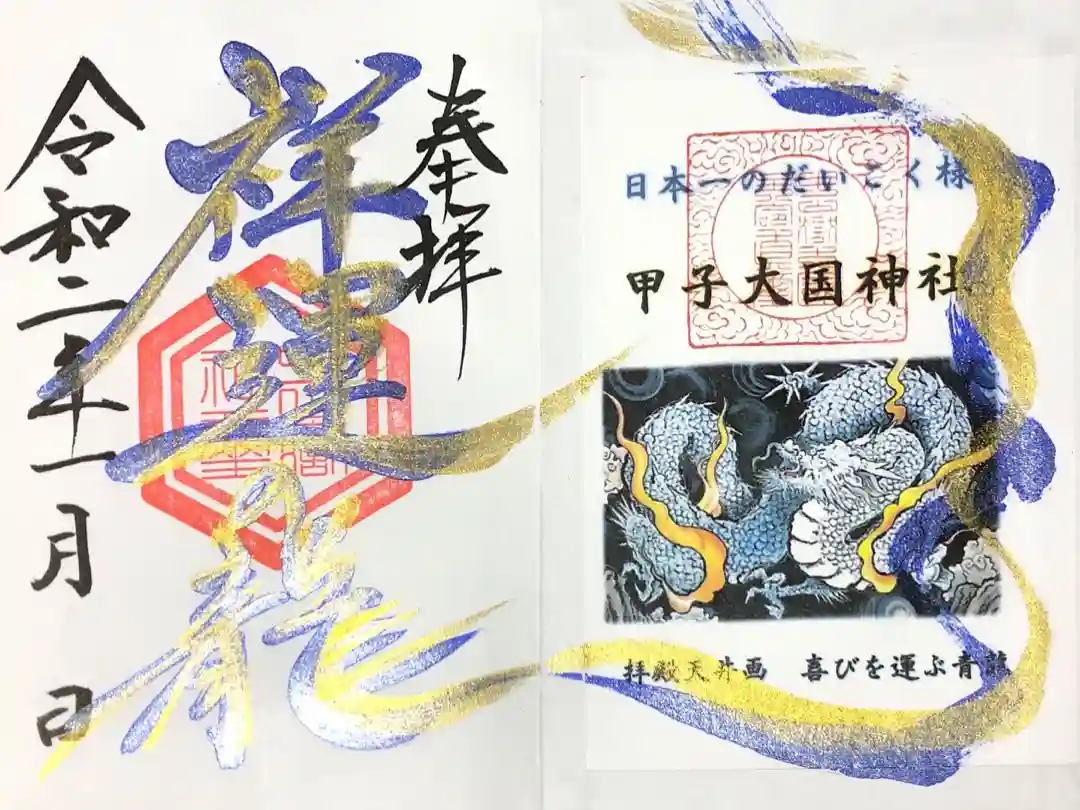 日本一のだいこく様
甲子大国神社
拝殿天井画 喜びを運ぶ青龍
奉拝
祥運龍
令和二年十一月 日